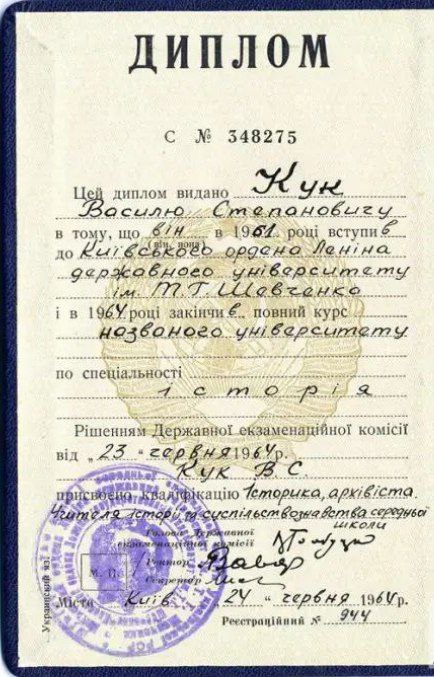 ДИПЛОМ
С № 348275
Цей диплом видано Кук
Василю Степановичу
в тому, що він в 1961 році вступив
(він, вона)
до Київського ордена Леніна
державного університету
ім. Т.Г. Шевченко
і в 1964 році закінчив повний курс
названого університету
по спеціальності
історія
Рішенням Державної екзаменаційної комісії
від „23“ червня 1964 р.
Кук В. С.
присвоєно кваліфікацію Історика, архівіста.
Учителя історії та суспільствознавства середньої
школи
Голова Державної
екзаменаційної комісії
Ректор
М. П.
Секретар
Місто Київ „24“ червня 1964 р.
Реєстраційний № 944